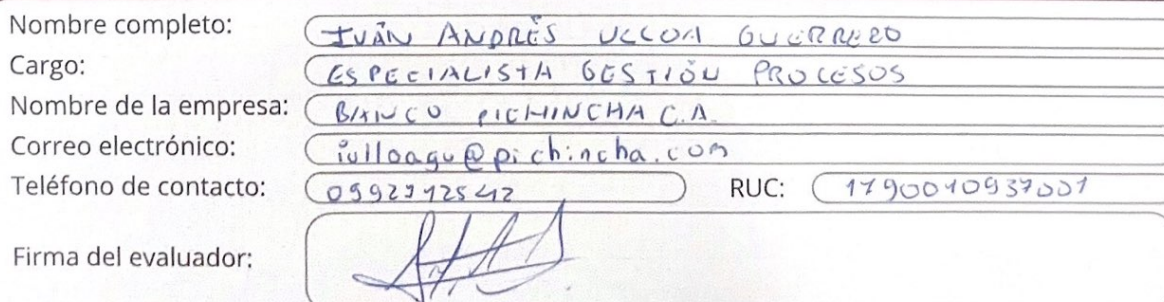 Nombre completo: IVÁN ANDRÉS ULLOA GUERRERO
Cargo: ESPECIALISTA GESTIÓN PROCESOS
Nombre de la empresa: BANCO PICHINCHA C.A.
Correo electrónico: iulloagu@pichincha.com
Teléfono de contacto: RUC: 1790010937001
Firma del evaluador: